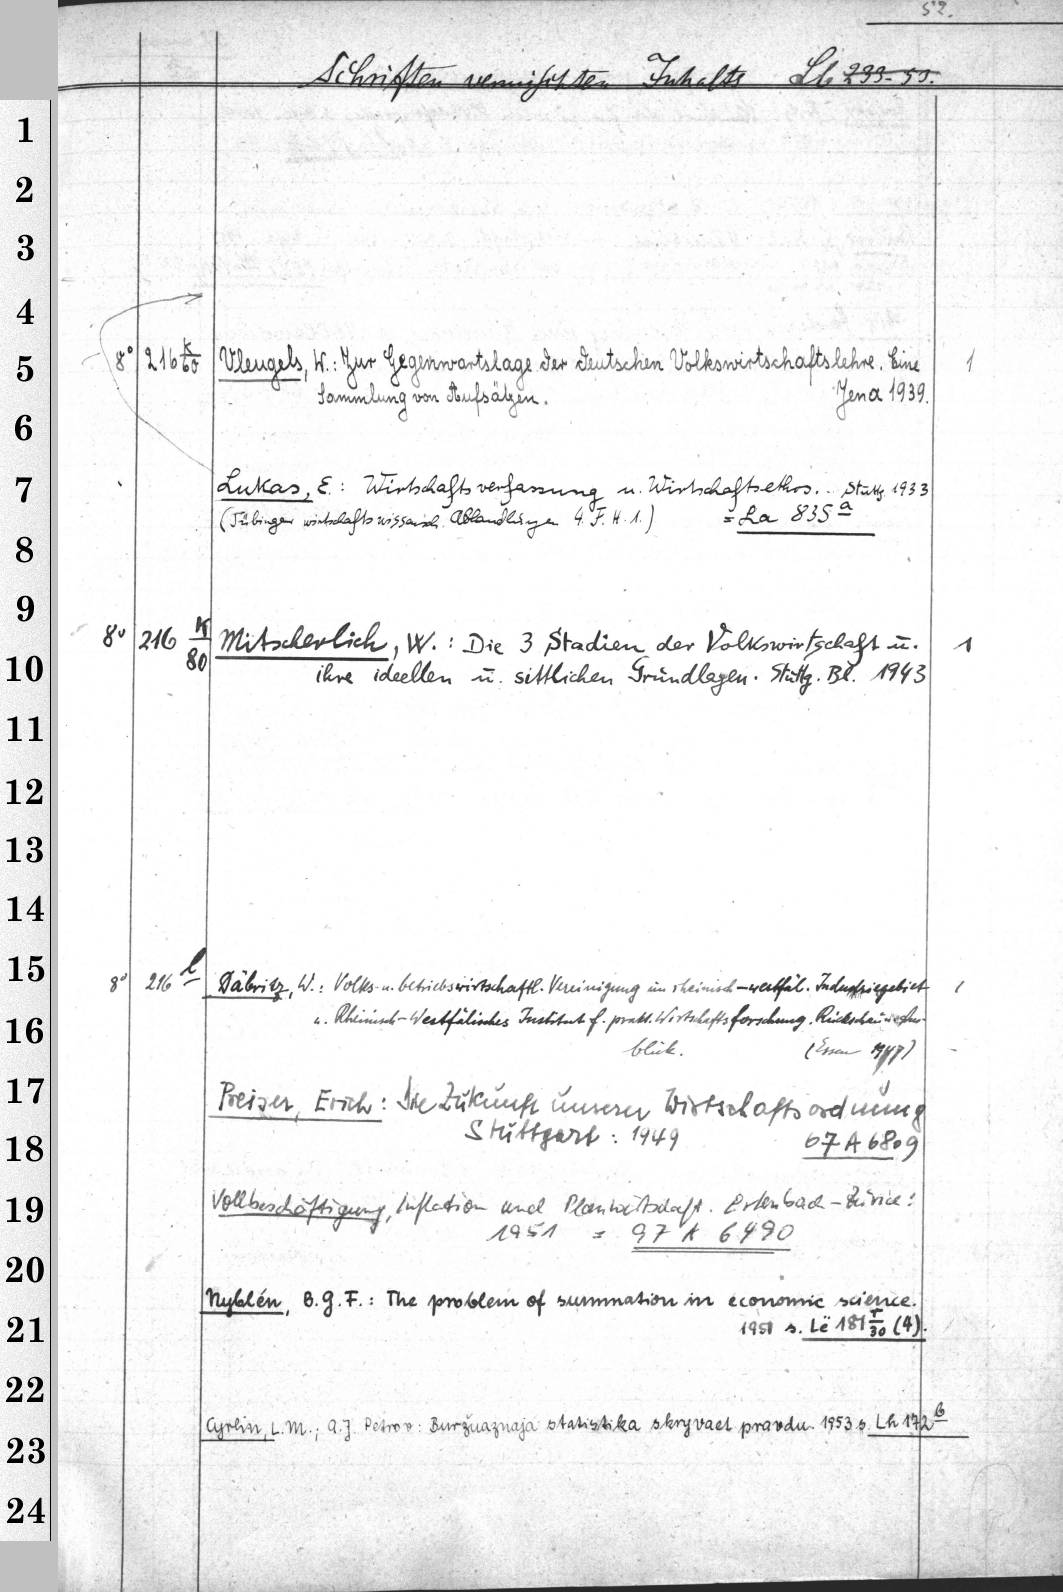 52.
Schriften vermischten Inhalts Lh 299-53.
1
2
3
4
5 8° 216 k/60 Vleugels, W.: Zur Gegenwartslage der deutschen Volkswirtschaftslehre. Eine 1
Sammlung von Aufsätzen. Jena 1939.
6
7 Lukas, E.: Wirtschaftsverfassung u. Wirtschaftsethos. Stuttg 1933
(Tübinger wirtschaftswissensch. Abhandlungen 4. F. H. 1.) = La 835 a
8
9
8° 216 K/80 Mitscherlich, W.: Die 3 Stadien der Volkswirtschaft u. 1
10 ihre ideellen u. sittlichen Grundlagen. Stuttg. Bl. 1943
11
12
13
14
15 8° 216 l Däbritz, W.: Volks- u. betriebswirtschaftl. Vereinigung im rheinisch-westfäl. Industriegebiet 1
16 u. Rheinisch-Westfälisches Institut f. prakt. Wirtschaftsforschung. Rückschau
blick. (Essen 1947)
17 Preiser, Erich: Die Zukunft unserer Wirtschaftsordnung
18 Stuttgart: 1949 67 A 6809
19 Vollbeschäftigung, Inflation und Planwirtschaft. Erlenbach-Zürich:
1951 = 97 A 6490
20
Nyblén, B.G.F.: The problem of summation in economic science.
21 1951 s. Lë 181 r/30 (4).
22
Cyrlin, L.M.; A.J. Petrov: Buržuaznaja statistika skryvaet pravdu. 1953 s. Lh 172 b
23
24